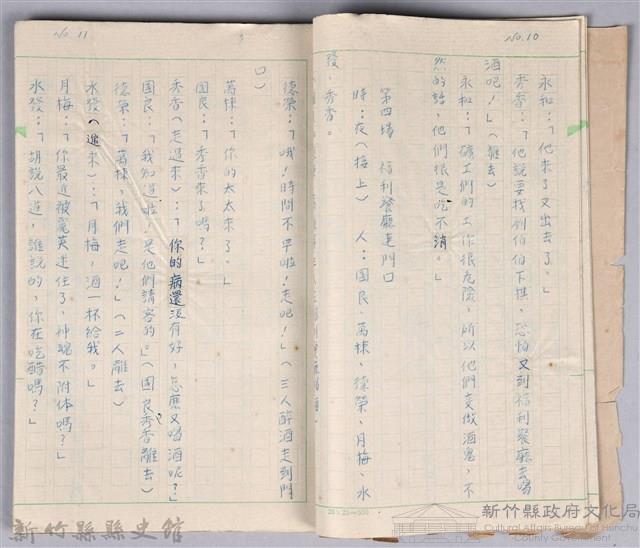 No.10
永和：「他來了又出去了。」
秀香：「他說要找劉伯伯下棋，恐怕又到福利餐廳去喝
酒吧！」（離去）
永和：「礦工們的工作很危險，所以他們變做酒鬼，不
然的話，他們很是吃不消。」
第四場 福利餐廳走門口
時：夜（接上） 人：國良、萬棟、德榮、月梅、水
發、秀香。
No.11
德榮：「哦！時間不早啦！走吧！」（三人醉酒走到門
口）
萬棟：「你的太太來了。」
國良：「秀香來了嗎？」
秀香（走過來）：「你的病還沒有好，怎麼又喝酒呢？」
國良：「我知道啦！是他們請客的。」（國良秀香離去）
德榮：「萬棟，我們走吧！」（二人離去）
水發（進來）：「月梅，酒一杯給我。」
月梅：「你最近被麗英迷住了，神魂不附体嗎？」
水發：「胡說八道，誰說的，你在吃醋嗎？」
新竹縣縣史館
新竹縣政府文化局
Cultural Affairs Bureau of Hsinchu
County Government